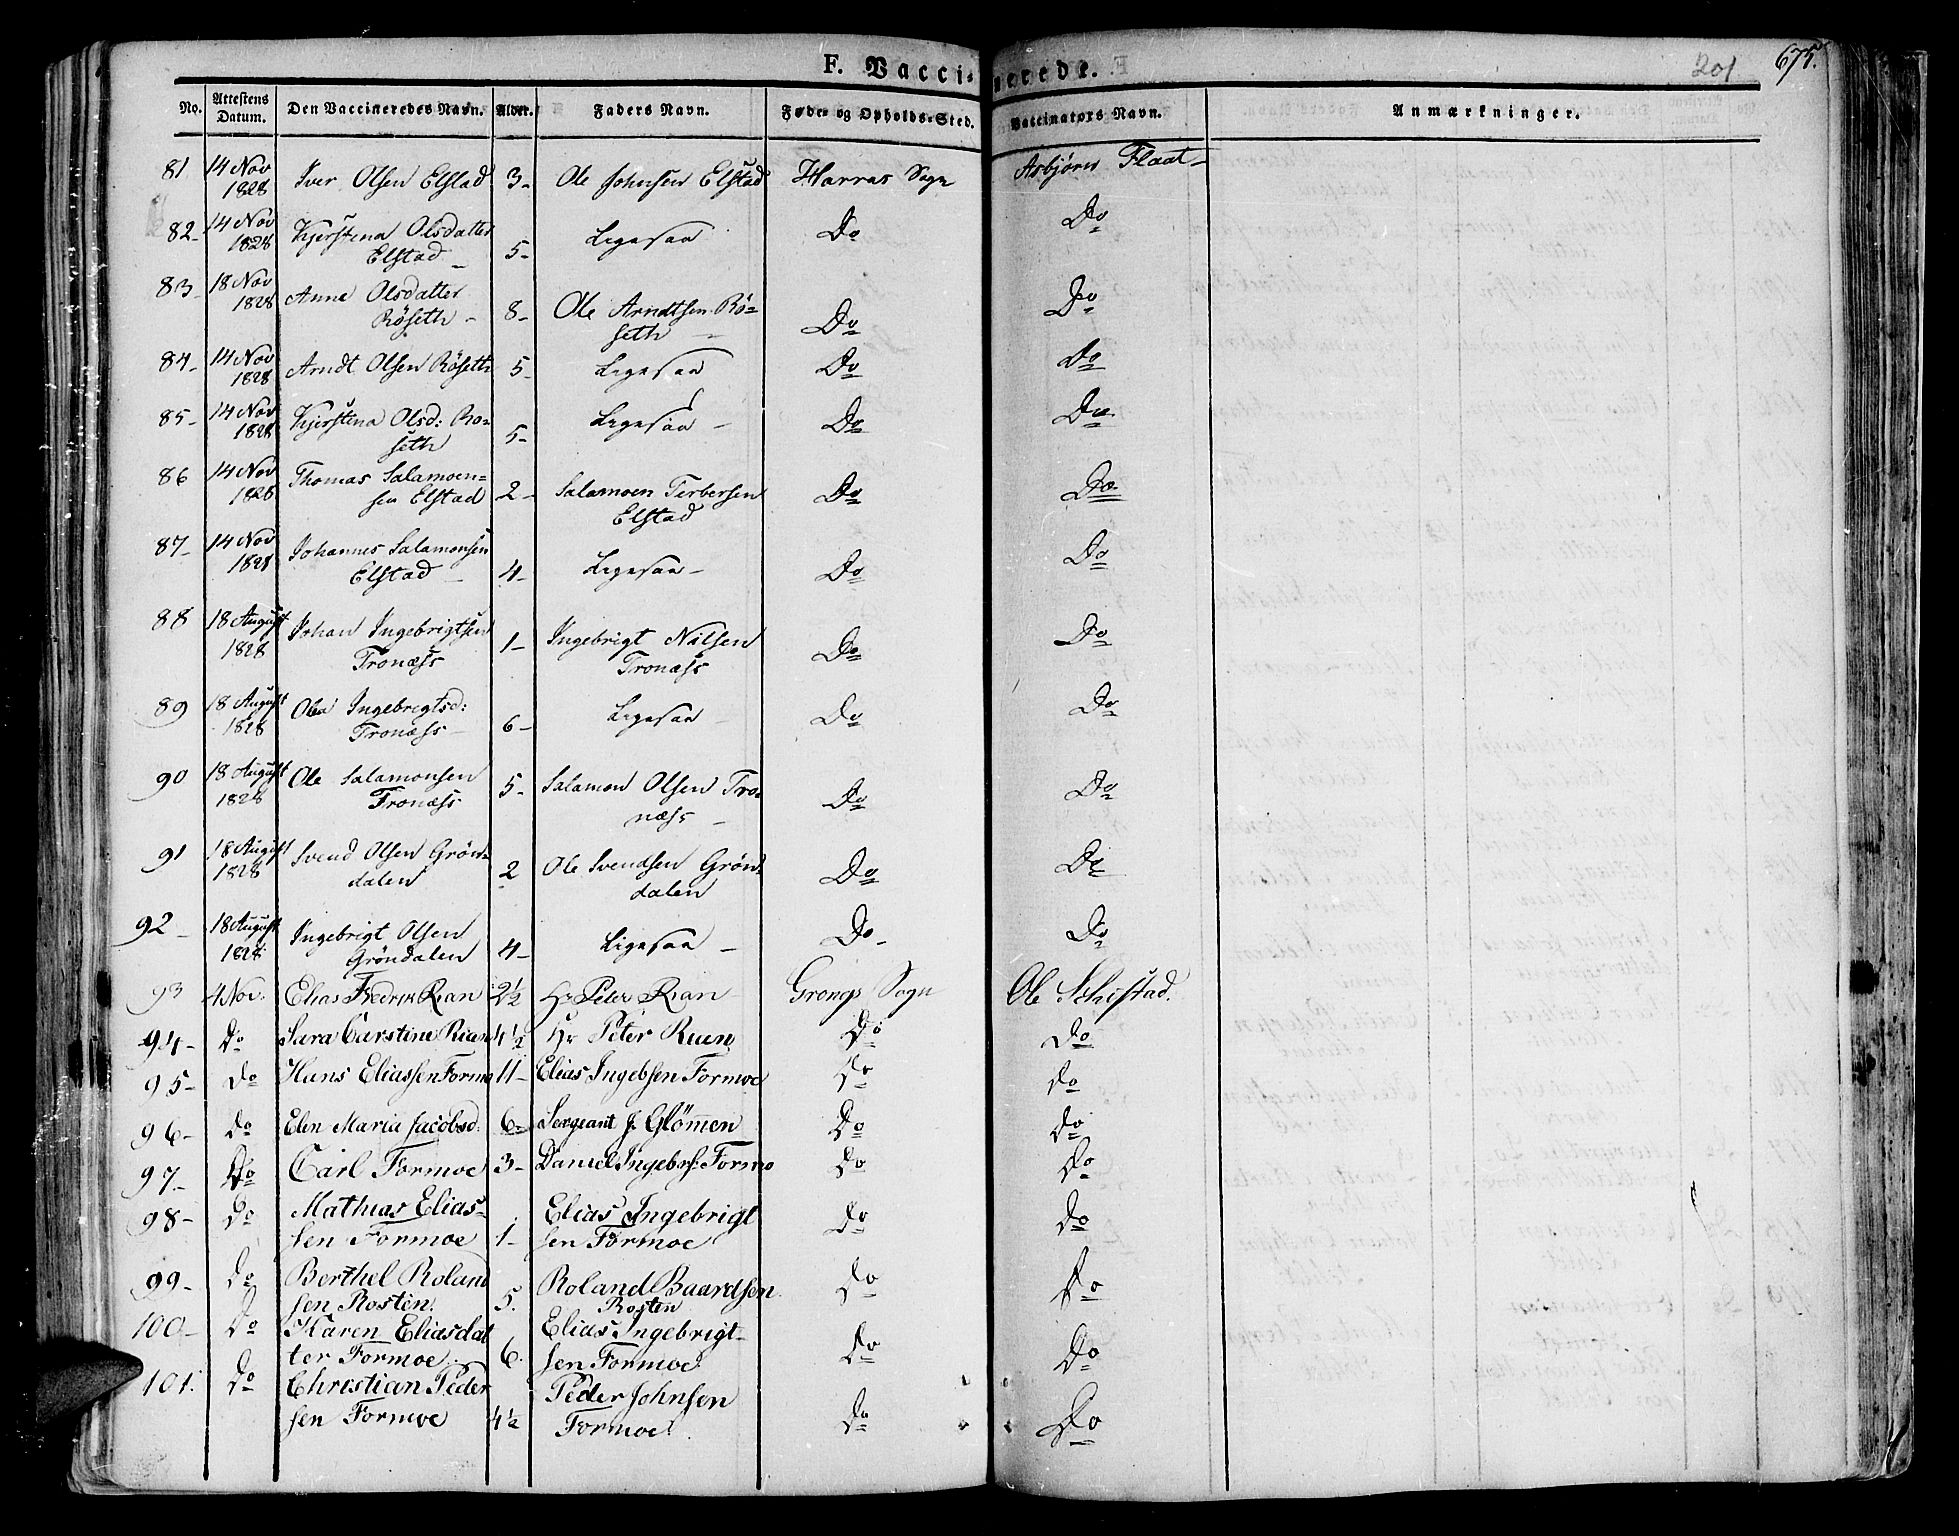 F. Vaccinerede.
201
675.
No. Attestens Datum. Den Vaccineredes Navn. Alder. Faders Navn. Føde- og Opholds-Sted. Vaccinators Navn. Anmærkninger.
81 14 Nov 1828 Iver Olsen Elstad 3- Ole Johnsen Elstad Harras Sogn Asbjørn Flaat-
82- 14 Nov 1828 Kjerstina Olsdatter Elstad - 5- Ligesaa Do Do
83- 18 Nov 1828 Anne Olsdatter Röseth - 8- Ole Arndtsen Rö=seth - Do Do
84- 14 Nov 1828 Arndt Olsen Röseth 5- Ligesaa Do Do
85- 14 Nov 1828 Kjerstina Olsd: Ro=seth 5- Ligesaa - Do Do
86 14 Nov 1828 Thomas Salamoen=sen Elstad 2- Salamoen Terbersen Elstad Do Do
87- 14 Nov 1828 Johannes Salamonsen Elstad - 4- Ligesaa - Do Do
88 18 August 1828 Johan Ingebrigtsen Tronæss 1- Ingebrigt Nilsen Tronæss Do Do
89 18 August 1828 Olea Ingebrigtsd: Tronæss - 6- Ligesaa - Do Do
90 18 August 1828 Ole Salamonsen Tronæss 5- Salamon Olsen Tro=næss - Do Do
91 18 August 1828 Svend Olsen Grön=dalen 2 Ole Svendsen Grön=dalen Do Do
92- 18 August 1828 Ingebrigt Olsen Gröndalen 4- Ligesaa - Do- Do
93 4 Nov: Elias Fredrik Rian 2½ Hr Peter Rian Grongs Sogn Ole Schistad.
94- Do Sara Carstine Rian 4½ Hr Peter Rian Do Do
95- Do Hans Eliassen Formo 11- Elias Ingebsen Formoe Do Do
96- Do Elen Maria Jacobsd: 6- Sergeant J. Glömmen Do Do
97- Do Carl Formoe 3- Daniel Ingebrs: Formo Do Do
98- Do Mathias Elias=sen Formoe 1- Elias Ingebrigtsen Formoe Do Do
99- Do Berthel Rolandsen Rosten. 5. Roland Baardsen Rosten Do Do
100- Do Karen Eliasdatter Formoe. 6. Elias Ingebrigt-sen Formoe Do Do
101. Do Christian Pedersen Formoe 4½ Peder Johnsen Formoe. Do Do